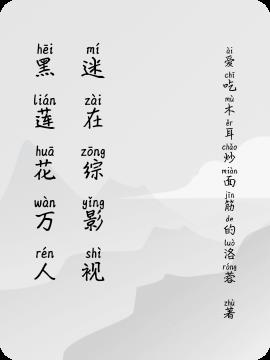 hēi lián huā wàn rén
黑莲花万人
mí zài zōng yǐng shì
迷在综影视
ài chī mù ěr chǎo miàn jīn de luò róng zhù
爱吃木耳炒面筋的洛蓉 著